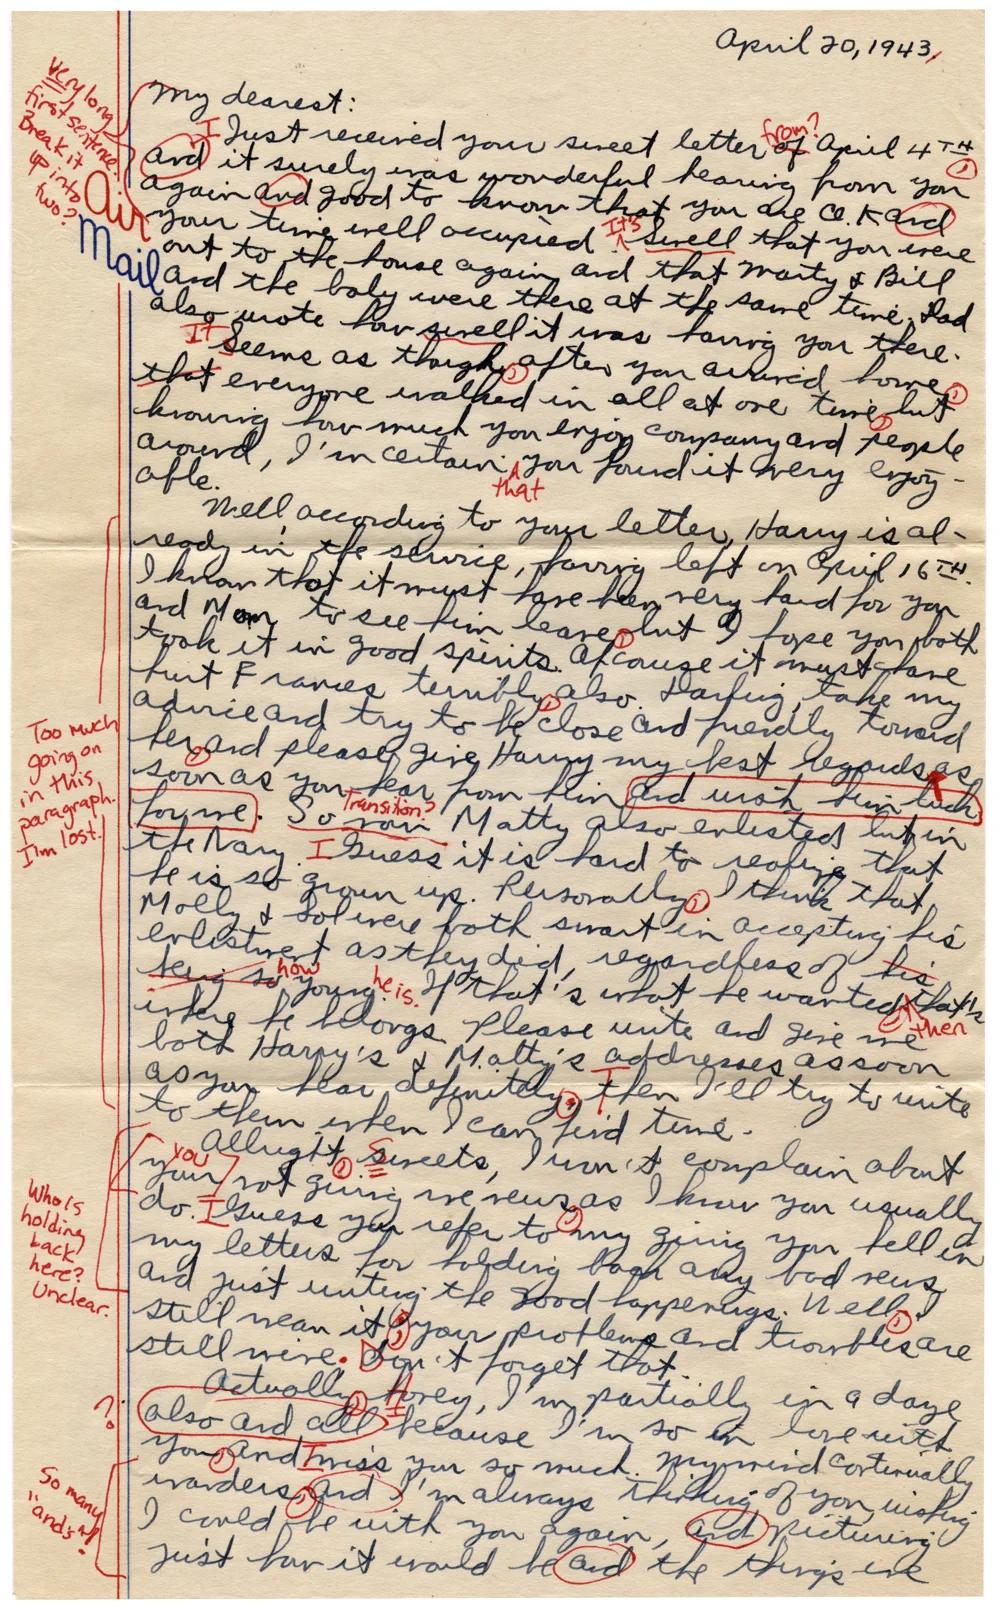 April 20, 1943,
My dearest:
I Just received your sweet letter of April 4TH
from?
and it surely was wonderful hearing from you
again and good to know that you are O.K and
your time well occupied. It's Swell that you were
out to the house again and that Marty & Bill
and the baby were there at the same time. Dad
also wrote how swell it was having you there.
It Seems as though, after you arrived home,
that everyone walked in all at one time, but
knowing how much you enjoy company and people
around, I'm certain you found it very enjoy-
that
able.
Very long
first sentence.
Break it
up into
two?
Air
Mail
Well, according to your letter, Harry is al-
ready in the service, having left on April 16TH.
I know that it must have been very hard for you
and Mom to see him leave, but I hope you both
took it in good spirits. Of course it must have
hurt Frances terribly, also. Darling, take my
advice and try to be close and friendly toward
her, and please give Harry my best regards as
soon as you hear from him and wish him luck
for me. So now Matty also enlisted but in
Transition?
the Navy. I Guess it is hard to realize that
he is so grown up. Personally, I think that
Molly & Sol were both smart in accepting his
enlistment as they did, regardless of his
being so young. If that's what he wanted, that's
how he is.
then
where he belongs. Please write and give me
both Harry's & Matty's addresses as soon
as you hear definitely, then I'll try to write
to them when I can find time.
Too much
going on
in this
paragraph.
I'm lost.
Allright, Sweets, I won't complain about
your not giving me news, as I know you usually
you
do. I Guess you refer to my giving you hell in
my letters for holding back any bad news
and just writing the good happenings. Well, I
still mean it; your problems and troubles are
still mine. Don't forget that.
Who is
holding
back
here?
Unclear.
Actually, honey, I'm partially in a daze
also and all because I'm so in love with
?
you, and I miss you so much. My mind continually
wanders, and I'm always thinking of you, wishing
I could be with you again, and picturing
just how it would be and the things we
So many
"ands"!